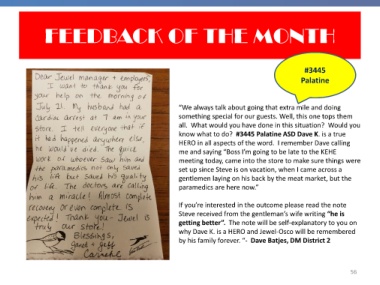 FEEDBACK OF THE MONTH
#3445
Palatine
Dear Jewel manager + employees,
I want to thank you for
your help on the morning of
July 21. My husband had a
cardiac arrest at 7 am in your
store. I tell everyone that if
it had happened anywhere else
he would've died. The quick
work of whoever saw him and
the paramedics not only saved
his life but saved his quality
of life. The doctors are calling
him a miracle! Almost complete
recovery or even complete is
expected! Thank you - Jewel is
truly our store!
Blessings,
"We always talk about going that extra mile and doing
something special for our guests. Well, this one tops them
all. What would you have done in this situation? Would you
know what to do? #3445 Palatine ASD Dave K. is a true
HERO in all aspects of the word. I remember Dave calling
me and saying "Boss I'm going to be late to the KEHE
meeting today, came into the store to make sure things were
set up since Steve is on vacation, when I came across a
gentlemen laying on his back by the meat market, but the
paramedics are here now."
If you're interested in the outcome please read the note
Steve received from the gentleman's wife writing "he is
getting better". The note will be self-explanatory to you on
why Dave K. is a HERO and Jewel-Osco will be remembered
by his family forever. "- Dave Batjes, DM District 2
56